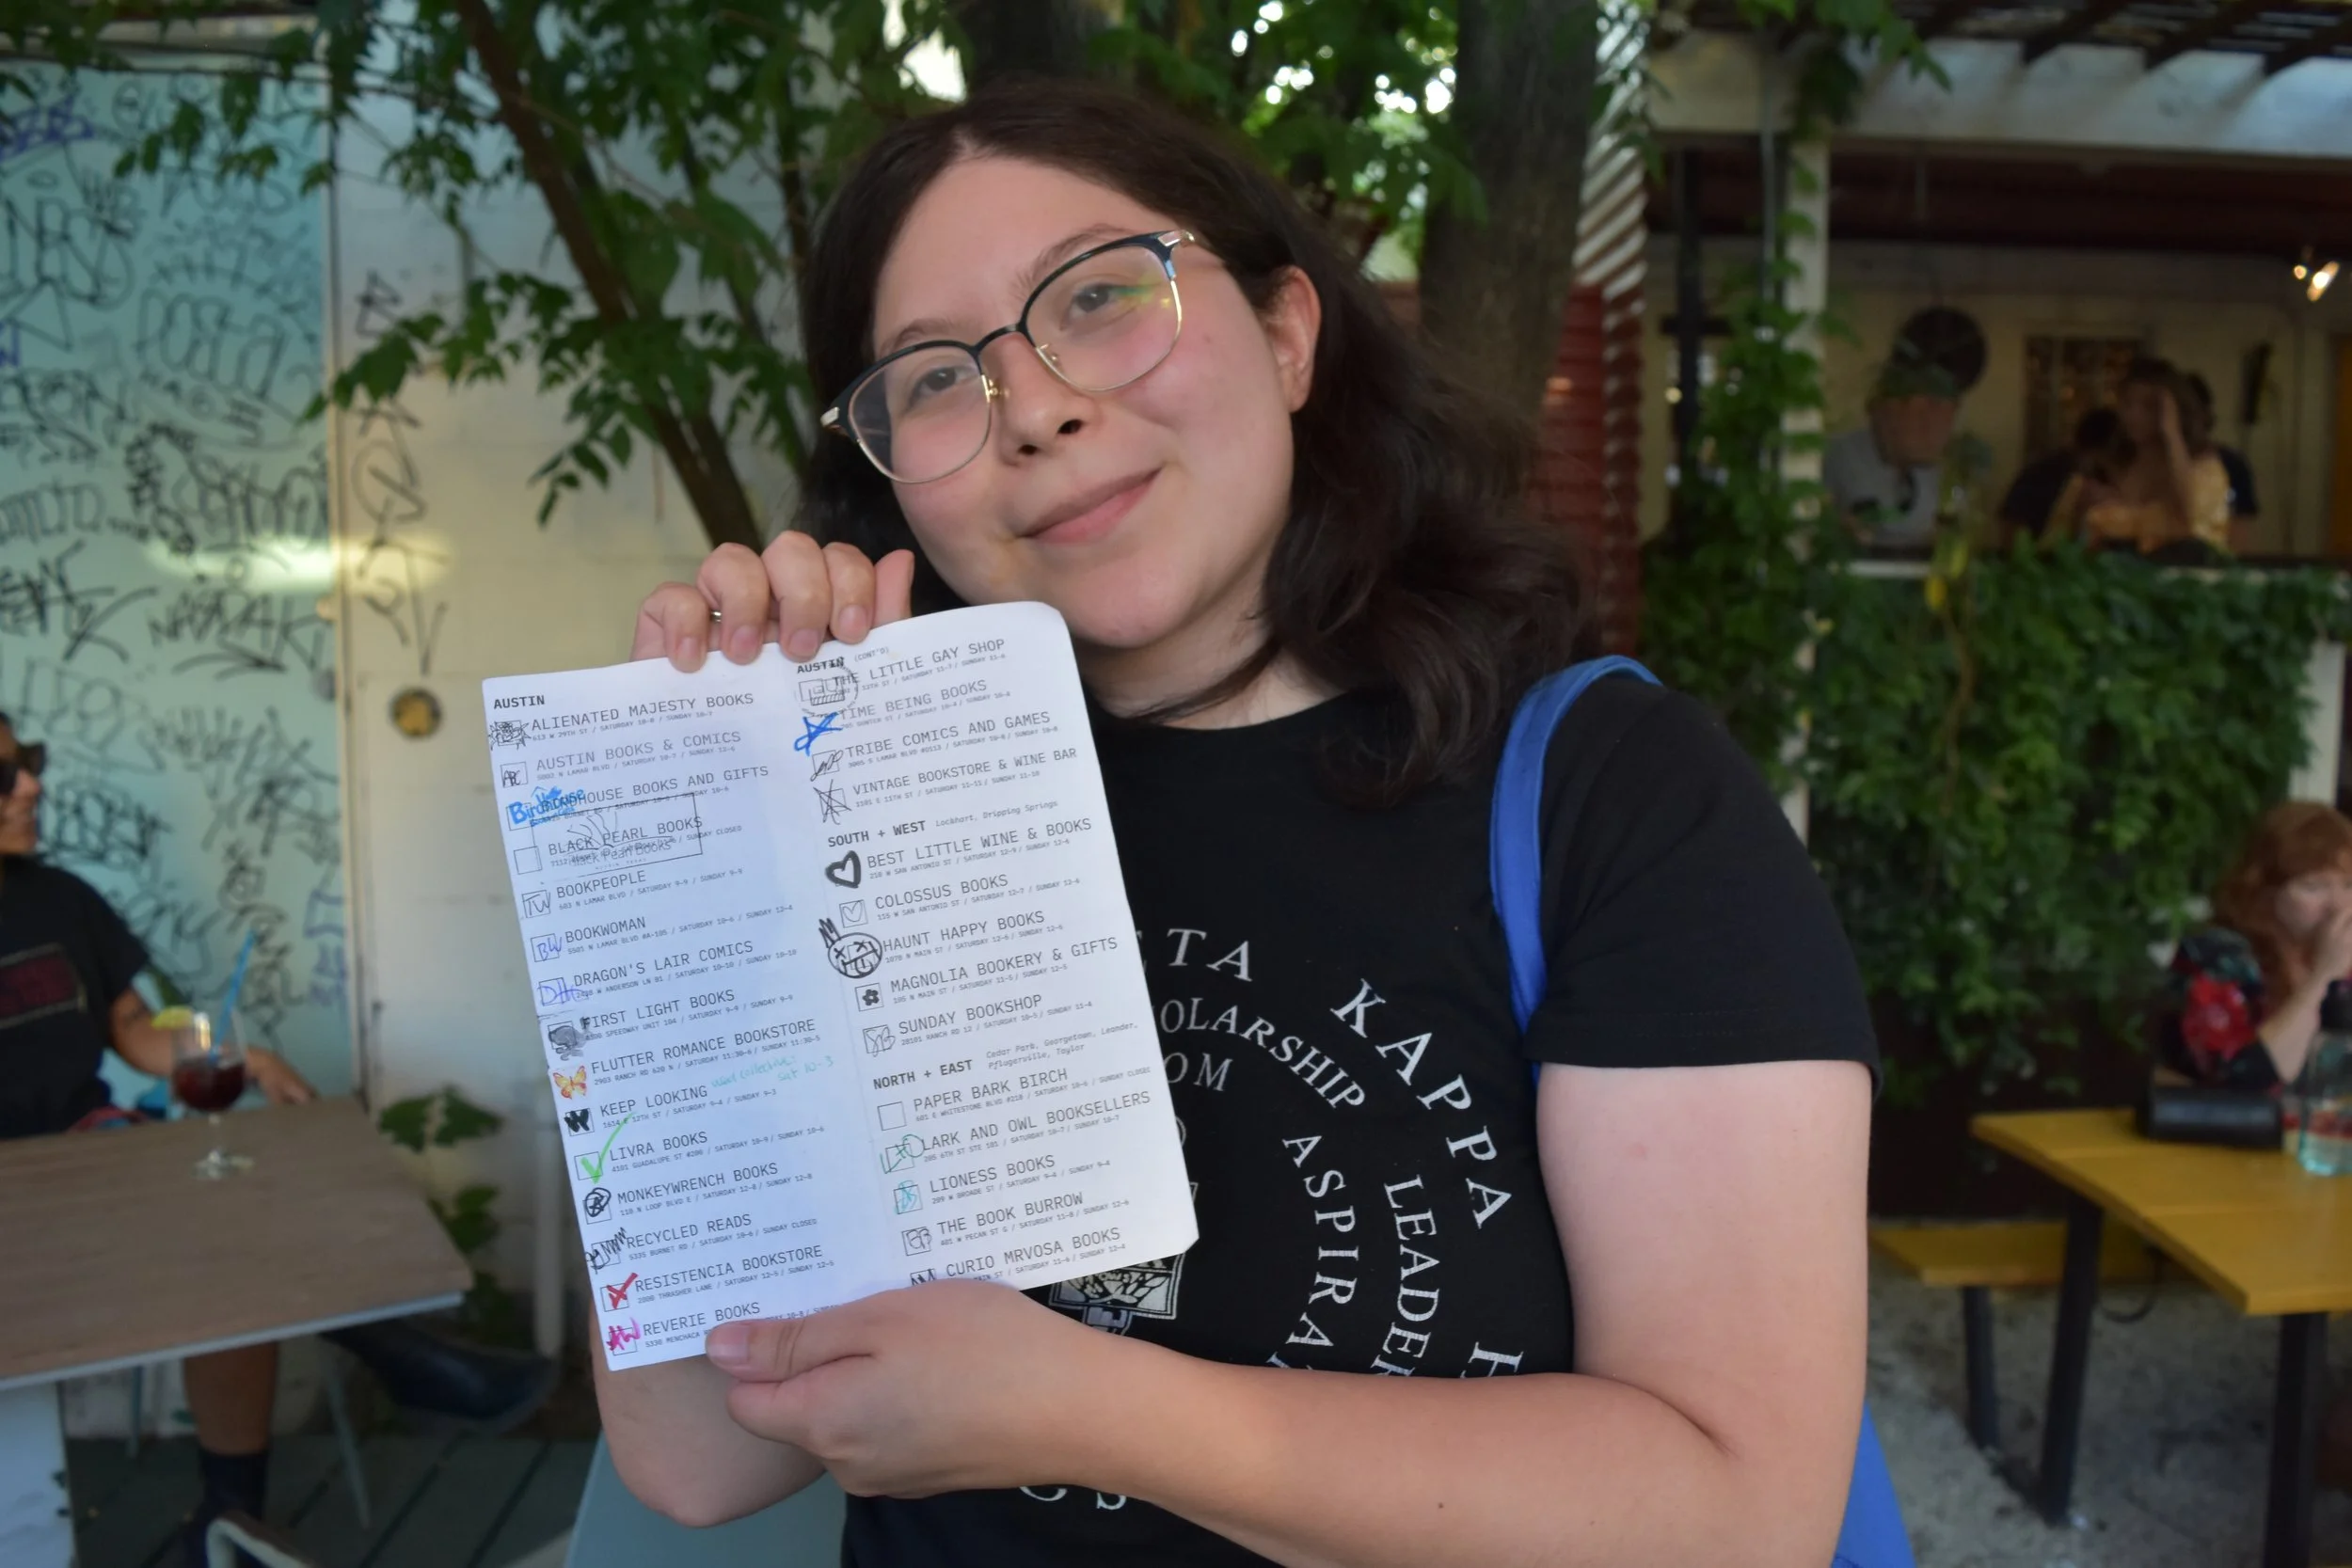 AUSTIN
ALIENATED MAJESTY BOOKS
613 W 29TH ST / SATURDAY 10-8 / SUNDAY 10-7
ABC AUSTIN BOOKS & COMICS
5002 N LAMAR BLVD / SATURDAY 10-7 / SUNDAY 12-6
Birdhouse BIRDHOUSE BOOKS AND GIFTS
BLACK PEARL BOOKS
Black Pearl Books
SUNDAY CLOSED
TW BOOKPEOPLE
603 N LAMAR BLVD / SATURDAY 9-9 / SUNDAY 9-9
BW BOOKWOMAN
5501 N LAMAR BLVD #A-105 / SATURDAY 10-6 / SUNDAY 12-6
DRAGON'S LAIR COMICS
W ANDERSON LN 01 / SATURDAY 10-10 / SUNDAY 10-10
FIRST LIGHT BOOKS
SPEEDWAY UNIT 104 / SATURDAY 9-9 / SUNDAY 9-9
FLUTTER ROMANCE BOOKSTORE
2903 RANCH RD 620 N / SATURDAY 11:30-6 / SUNDAY 11:30-5
KEEP LOOKING
12TH ST / SATURDAY 9-4 / SUNDAY 9-3
sat 10-3
LIVRA BOOKS
4101 GUADALUPE ST #200 / SATURDAY 10-9 / SUNDAY 10-6
MONKEYWRENCH BOOKS
110 N LOOP BLVD E / SATURDAY 12-8 / SUNDAY 12-8
RECYCLED READS
5335 BURNET RD / SATURDAY 10-6 / SUNDAY CLOSED
RESISTENCIA BOOKSTORE
2000 THRASHER LANE / SATURDAY 12-5 / SUNDAY 12-5
REVERIE BOOKS
5330 MENCHACA
AUSTIN (CONT'D)
THE LITTLE GAY SHOP
12TH ST / SATURDAY 11-7 / SUNDAY 11-6
TIME BEING BOOKS
GUNTER ST / SATURDAY 10-6 / SUNDAY 10-6
TRIBE COMICS AND GAMES
3005 S LAMAR BLVD #D113 / SATURDAY 10-8 / SUNDAY 10-8
VINTAGE BOOKSTORE & WINE BAR
1101 E 11TH ST / SATURDAY 11-11 / SUNDAY 11-10
SOUTH + WEST Lockhart, Dripping Springs
BEST LITTLE WINE & BOOKS
210 W SAN ANTONIO ST / SATURDAY 12-9 / SUNDAY 12-6
COLOSSUS BOOKS
115 W SAN ANTONIO ST / SATURDAY 12-7 / SUNDAY 12-6
HAUNT HAPPY BOOKS
1070 N MAIN ST / SATURDAY 12-6 / SUNDAY 12-6
MAGNOLIA BOOKERY & GIFTS
105 N MAIN ST / SATURDAY 11-5 / SUNDAY 12-5
SUNDAY BOOKSHOP
28101 RANCH RD 12 / SATURDAY 10-5 / SUNDAY 11-4
NORTH + EAST Cedar Park, Georgetown, Leander, Pflugerville, Taylor
PAPER BARK BIRCH
601 E WHITESTONE BLVD #218 / SATURDAY 10-6 / SUNDAY CLOSED
LARK AND OWL BOOKSELLERS
205 6TH ST STE 101 / SATURDAY 10-7 / SUNDAY 10-7
LIONESS BOOKS
209 W BROADE ST / SATURDAY 9-4 / SUNDAY 9-4
THE BOOK BURROW
401 W PECAN ST G / SATURDAY 11-8 / SUNDAY 12-6
CURIO MRVOSA BOOKS
MAIN ST / SATURDAY 11-6 / SUNDAY 12-4
TA KAPPA
OLARSHIP
OM
ASPIRA
LEADER